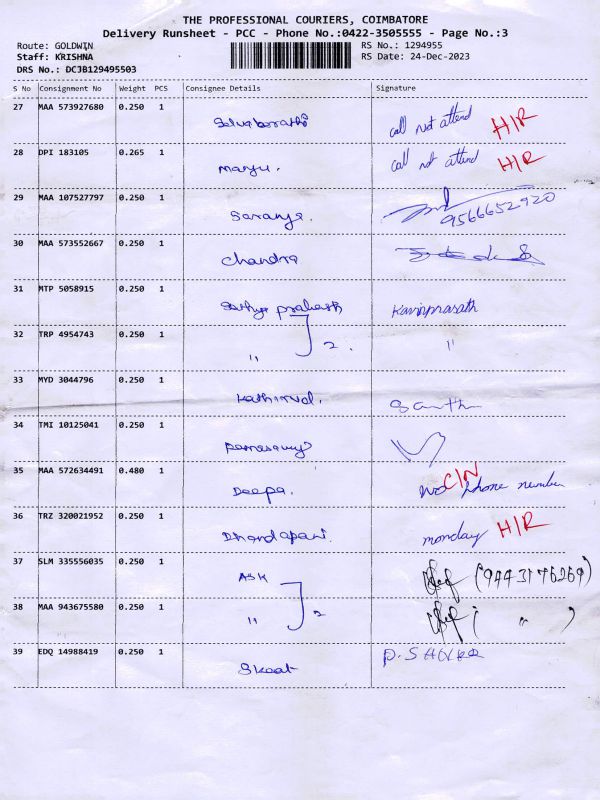 THE PROFESSIONAL COURIERS, COIMBATORE
Delivery Runsheet - PCC - Phone No.:0422-3505555 - Page No.:3
Route: GOLDWIN RS No.: 1294955
Staff: KRISHNA RS Date: 24-Dec-2023
DRS No.: DCJB129495503
S No Consignment No Weight PCS Consignee Details Signature
27 MAA 573927680 0.250 1 call not attend H/R
28 DPI 183105 0.265 1 manju. call not attend H/R
29 MAA 107527797 0.250 1 Saranya. 9566652920
30 MAA 573552667 0.250 1 Chandra
31 MTP 5058915 0.250 1 Sathya prakash Kaviyprasath
32 TRP 4954743 0.250 1 " 2. "
33 MYD 3044796 0.250 1 Kathirvel.
34 TMI 10125041 0.250 1 Ramasamy
35 MAA 572634491 0.480 1 Deepa. No C/N phone number
36 TRZ 320021952 0.250 1 Dhandapani. monday H/R
37 SLM 335556035 0.250 1 ASK (9443176269)
38 MAA 943675580 0.250 1 " 2 ( " )
39 EDQ 14988419 0.250 1 Skeat